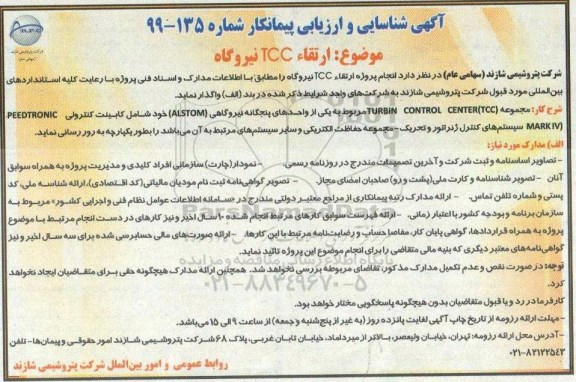 آگهی شناسایی و ارزیابی پیمانکار شماره ۱۳۵-۹۹
موضوع: ارتقاء TCC نیروگاه
شرکت پتروشیمی شازند (سهامی عام) در نظر دارد انجام پروژه ارتقاء TCC نیروگاه را مطابق با اطلاعات مدارک و اسناد فنی پروژه با رعایت کلیه استانداردهای
بین‌المللی مورد قبول شرکت پتروشیمی شازند به شرکت‌های واجد شرایط ذکر شده در بند (الف) واگذار نماید.
شرح کار: مجموعه TURBIN CONTROL CENTER(TCC) مربوط به یکی از واحدهای پنجگانه نیروگاهی (ALSTOM) خود شامل کابینت کنترولی PEEDTRONIC
MARK IV) سیستم‌های کنترل ژنراتور و تحریک - مجموعه حفاظت الکتریکی و سایر سیستم‌های مرتبط به آن می‌باشد را بطور یکپارچه به روز رسانی نماید.
الف) مدارک مورد نیاز:
- تصاویر اساسنامه و ثبت شرکت و آخرین تصمیمات مندرج در روزنامه رسمی. - نمودار (چارت) سازمانی افراد کلیدی و مدیریت پروژه به همراه سوابق
آنان - تصویر شناسنامه و کارت ملی (پشت و رو) صاحبان امضای مجاز. - تصویر گواهی‌نامه ثبت نام مودیان مالیاتی (کد اقتصادی)، ارائه شناسه ملی، کد
پستی و شماره تلفن تماس. - ارائه مدارک رتبه پیمانکاری از مراجع معتبر دولتی مندرج در «سامانه اطلاعات عوامل نظام فنی و اجرایی کشور» مربوط به
سازمان برنامه و بودجه کشور با اعتبار زمانی. - ارائه فهرست سوابق کارهای مرتبط انجام شده ۱۰ سال اخیر و نیز کارهای در دست انجام مرتبط با موضوع
پروژه به همراه قراردادها، گواهی پایان کار، مفاصا حساب و رضایت‌نامه مرتبط با این کارها. - ارائه صورت‌های مالی حسابرسی شده برای سه سال اخیر و نیز
گواهی‌نامه‌های معتبر دیگری که بنیه مالی متقاضی را برای انجام موضوع این پروژه تائید نماید.
توجه: در صورت نقص و عدم تکمیل مدارک مذکور، تقاضای مربوطه بررسی نخواهد شد. همچنین ارائه مدارک هیچگونه حقی برای متقاضیان ایجاد نخواهد
کرد.
کارفرما در رد و یا قبول متقاضیان بدون هیچگونه پاسخگویی مختار خواهد بود.
- مهلت ارائه رزومه از تاریخ چاپ آگهی لغایت پانزده روز (به غیر از پنج‌شنبه و جمعه) از ساعت ۹ الی ۱۵ می‌باشد.
- آدرس محل ارائه رزومه: تهران، خیابان ولیعصر، بالاتر از میرداماد، خیابان تابان غربی، پلاک ۶۸ شرکت پتروشیمی شازند امور حقوقی و پیمان‌ها - تلفن
۰۲۱-۸۲۱۲۲۵۴۳
روابط عمومی و امور بین‌الملل شرکت پتروشیمی شازند
۰۲۱-۸۸۳۴۹۶۷۰-۵